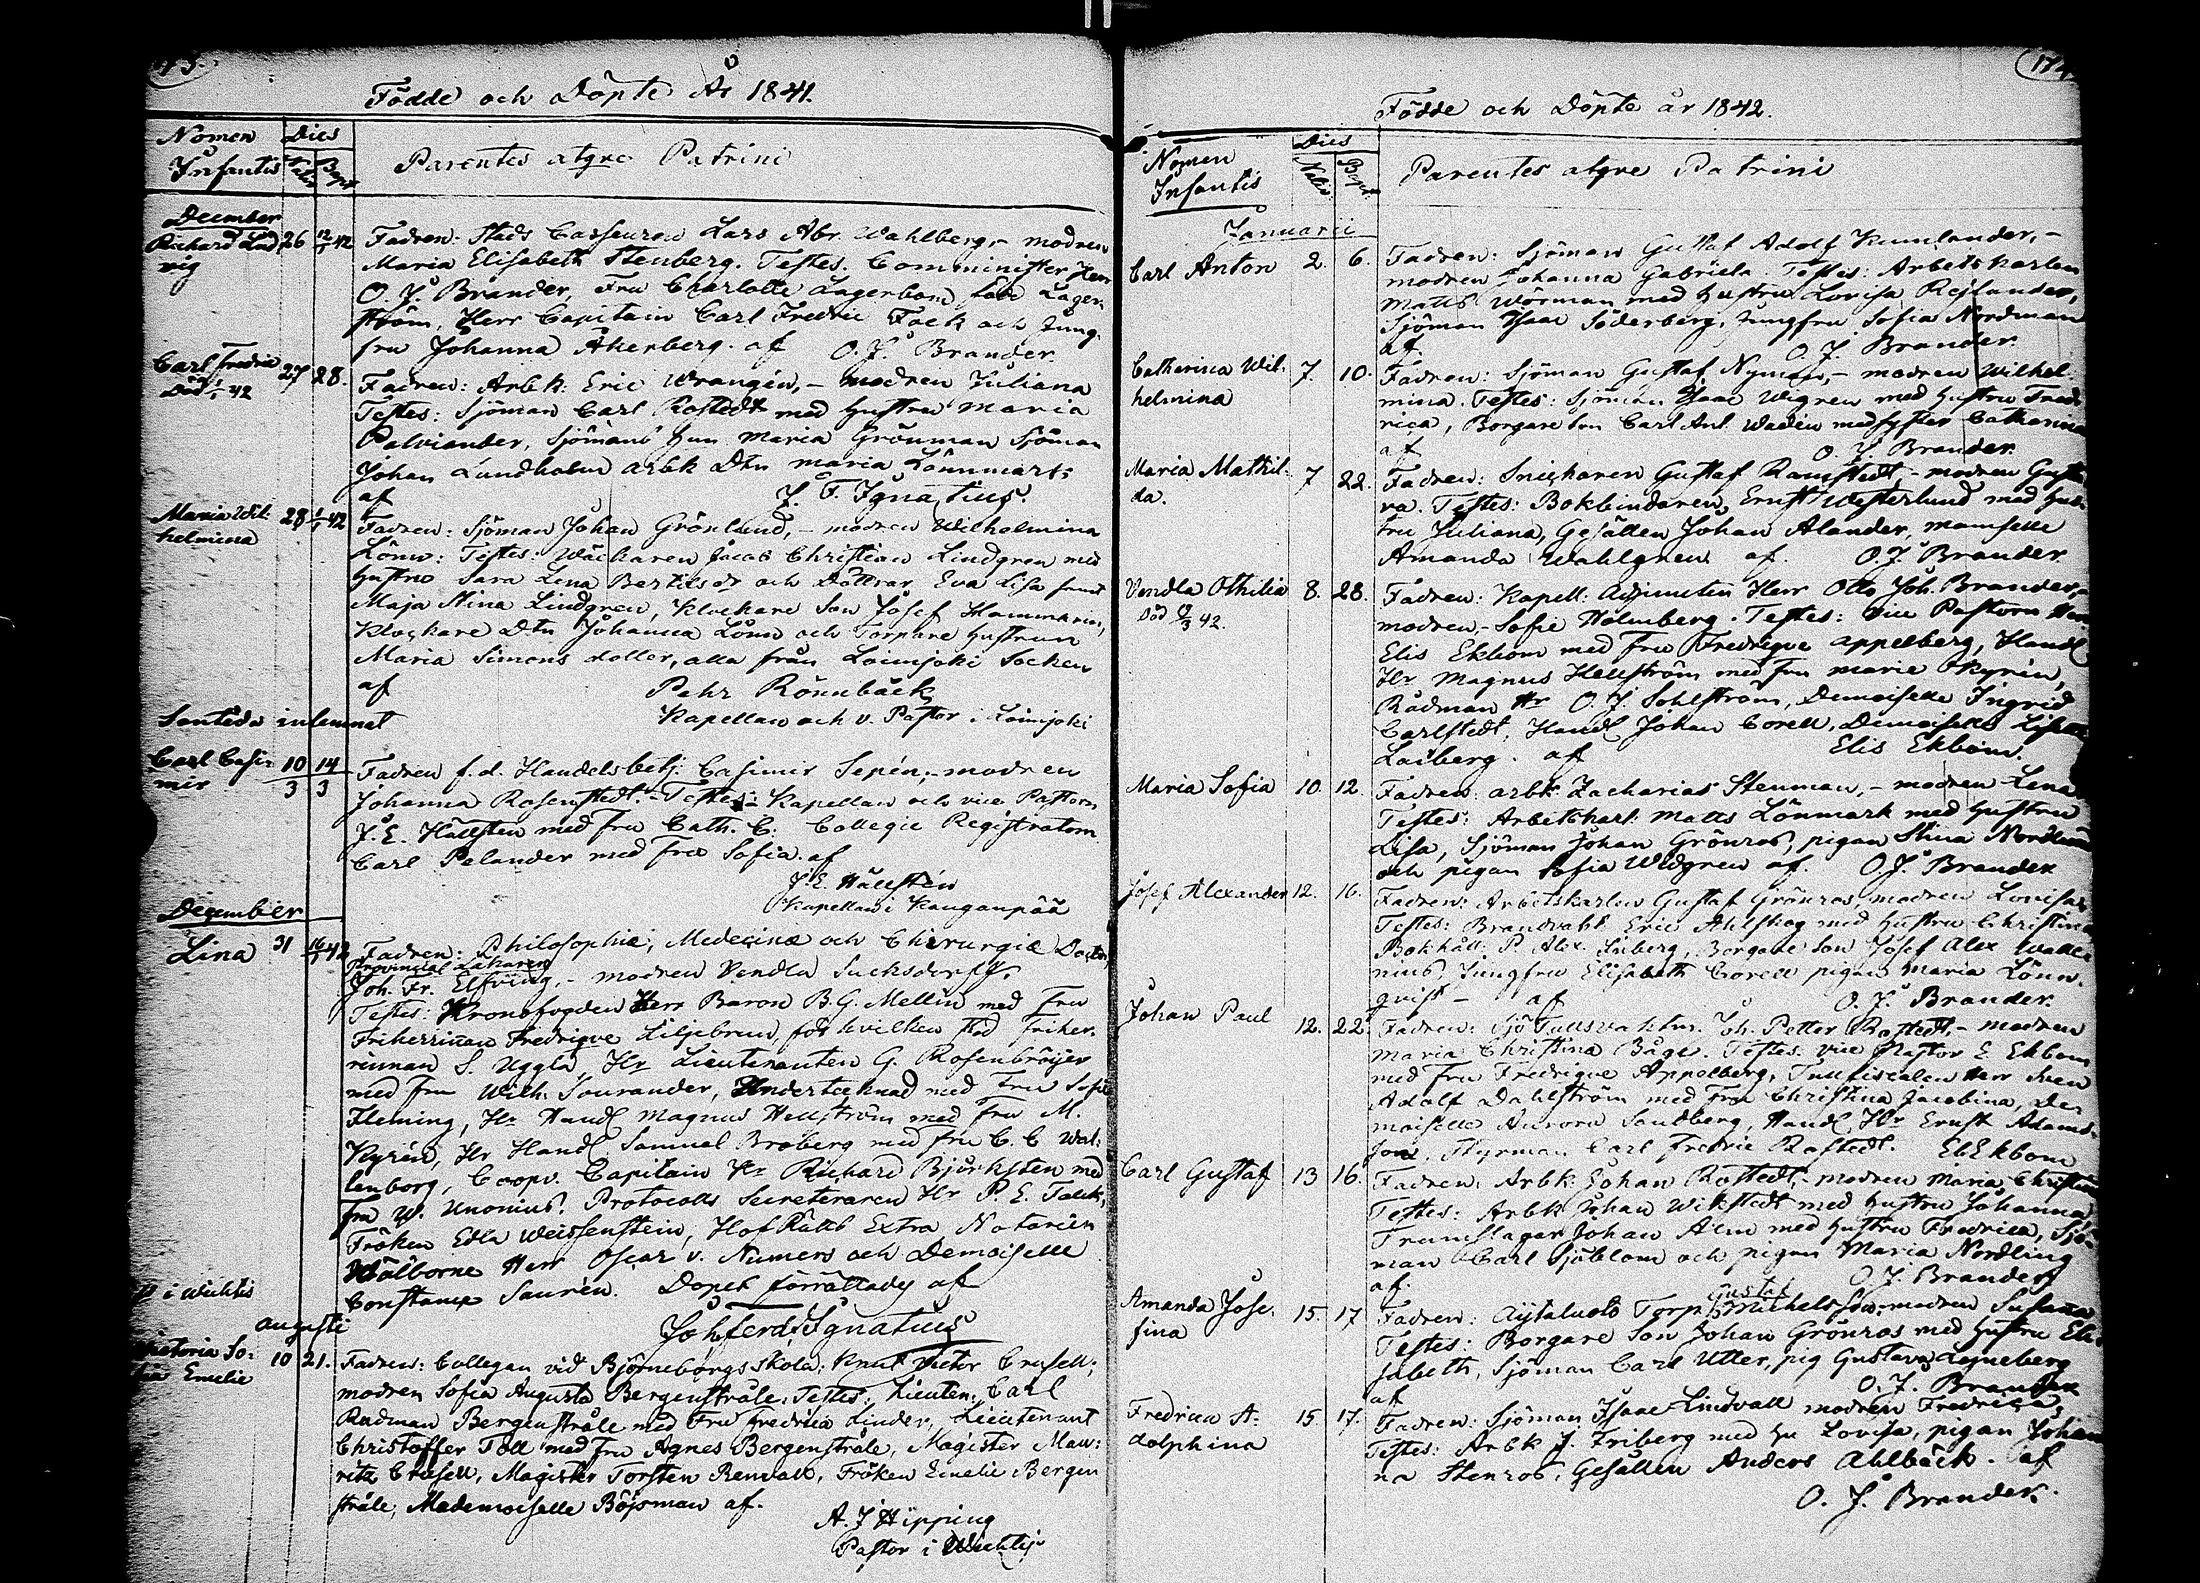 Födde och Döpte År 1841.
Nomen Infantis Dies Natis Bapt Parentes atqve Patrini
December
Richard Lud 26 12/1 42 Fadren: Stads Casseuren Lars Abr. Wahlberg, - modren
vig Maria Elisabeth Stenberg. Testes. Comminister Herr
O. J. Brander, Fru Charlotte Lagerbom, född Lager
ström, Herr Capitain Carl Fredric Fock och Jung
fru Johanna Åkerberg. af O. J. Brander.
Carl Fredric 27 28. Fadren: Arbk: Eric Wrangén, - modren Juliana
Död 42 Testes: Sjöman Carl Rostedt med hustru Maria
Palviander, Sjömans hun Maria Grönman Sjöman
Johan Lundbolm arbk Dtn Maria Lönnmark;
af J. F. Ignatius.
Maria Wil 28 1/1 42 Fadren: Sjöman Johan Grönlund, - modren Wilhelmina
helmina Lönn: Testes: Wäckaren Jacob Christian Lindgren med
hustru Sara Lena Bertilsdr och Döttrar Eva Lisa samt
Maja Stina Lindgren, Klockare Son Josef Hammarin,
Klockare Dtn Johanna Lönn och Torpare hustrun
Maria Simons dotter, alla från Loimjoki Socken
af Pehr Rönnbäck
Kapellan och v. Pastor i Loimjoki
Sentida inlemnat
Carl Casi- 10/3 14/3 Fadren f.d. Handelsbetj: Casimir Sepén, - modren
mir Johanna Rosenstedt. - Testes: Kapellan och vice Pastorn
J. E. Hällsten med fru Cath. C. Collegie Registratorn
Carl Pelander med fru Sofia. af
J. E. Hällstén
Kapellan i Kanganpää
December
Lina 31 16/1 42 Fadren: Philosophiæ, Medecinæ och Chirurgiæ Doctor,
Provincial Läkaren
Joh. Fr. Elfving, - modren Vendla Sucksdorff,
Testes: Kronofogden Herr Baron B. G. Mellin med Fru
Friherrinnan Fredrique Liljebrun, för hvilken stod Friher-
rinnan S. Uggla, Hr Lieutenanten G. Rosenbröijer
med fru Wilh. Sourander, Undertecknad med Fru Sofie
Fleming, Hr Handl Magnus Hellström med Fru M.
Kyrén, Hr Handl Samuel Broberg med fru C. C Wal-
lenborg, Coopv. Capitain Hr Richard Björksten med
fru W. Unonius, Protocolls Secreteraren Hr P. E. Falck,
Fröken Edla Weissenstein, Hof Rätts Extra Notarien
Wälborne Herr Oscar v. Numers och Demoiselle
Constance Saurén. Dopet förrättades af
Joh. Ferd. Ignatius
i Wichtis
augusti
Victoria So- 10 21. Fadren: Collegan vid Björneborgs skola: Knut Victor Crusell,
Emelie modren Sofia Augusta Bergenstråle. Testes: Lieuten. Carl
Radman Bergenstråle med Fru Fredrica Linder, Lieutenant
Christoffer Toll med fru Agnes Bergenstråle, Magister Mau-
ritz Crusell, Magister Torsten Renvall, Fröken Emelie Bergen
stråle, Mademoiselle Böjsman af.
A. J Hipping
Pastor i Wichtis
174
Födde och Döpte år 1842.
Nomen Infantis Dies Natis Bapt. Parentes atqve Patrini
Januarii
Carl Anton 2. 6. Fadren: Sjöman Gustaf Adolf Kumlander, -
modren Johanna Gabriela. Testes: Arbetskarlen
Matts Wörman med hustru Lovisa Rejlander,
Sjöman Isaac Söderberg, Jungfru Sofia Nordman
af. O. J. Brander.
Catharina Wil- 7. 10. Fadren: Sjöman Gustaf Nyman, - modren Wilhel-
helmina mina. Testes: Sjöman Isaac Wigren med hustru Fred-
rica, Borgare Son Carl Ant. Wadén med syster Catharina
af O. J. Brander.
Maria Mathil- 7 22. Fadren: Snickaren Gustaf Ramstedt, - modren Gusta
da. va. Testes: Bokbindaren, Ernst Westerlund med hus-
tru Juliana, Gesällen Johan Alander, mamselle
Amanda Wahlgren af. O. J. Brander
Vendla Othilia 8. 28. Fadren: Kapell: Adjuncten Herr Otto Joh. Brander,
Död 42. modren, - Sofie Holmberg. Testes: vice Pastorn Herr
Elis Ekbom med fru Fredrique Appelberg, Handl
Hr Magnus Hellström med fru Marie Kyrén,
Rådman Hr O. J. Sohlström, Demoiselle Ingrid
Carlstedt, Handl Johan Corell, Demoiselle
Loiberg. af Elis Ekbom.
Maria Sofia 10. 12. Fadren: arbk: Zacharias Stenman, - modren Lena
Testes: Arbetskarl Matts Lönmark med hustru
Lisa, Sjöman Johan Grönros, pigan Stina Nordlund
och pigan Sofia Widgren af. O. J. Brander
Josef Alexander 12. 16. Fadren: Arbetskarlen Gustaf Grönros, modren Lovisa,
Testes: Brandvakt Eric Ahlskog med hustru Christina
Bokhåll: P. Alex. Liberg, Borgare Son Josef Alex Walle-
nius, Jungfru Elisabeth Corell pigan Maria Lönn-
quist - af O. J. Brander.
Johan Paul 12. 22. Fadren: Sjö Tullsvaktm. Joh. Petter Rostedt, - modren
Maria Christina Båge. Testes. vice Pastor E. Ekbom
med Fru Fredrique Appelberg, Tullfiscalen Herr Sven
Adolf Dahlström med Fru Christina Jacobina, De-
moiselle Aurora Sandberg, Handl Hr Ernst Adams-
son, Styrman Carl Fredric Rostedt. El Ekbom
Carl Gustaf 13 16. Fadren. Arbk Johan Rostedt, - modren Maria Christina
Testes: Arbk Johan Wikstedt med hustru Johanna
Trumslagar Johan Alm med hustru Fredrica, Sjö-
man Carl Sjöblom och pigan Maria Nordling
af. O. J. Brander
Amanda Jose- 15. 17 Fadren: Torp: Gustaf Michelsson, modren Susanna
fina Testes: Borgare Son Johan Grönros med hustru Eli-
sabeth, Sjöman Carl Utter, pig Gustava Legneberg
af O. J. Brander
Fredrica A- 15 17. Fadren: Sjöman Isaac Lindvall modren Fredrica,
dolphina Testes: Arbk J. Friberg med hu Lovisa, pigan Johan
na Stenros, Gesällen Anders Ahlbäck. af
O. J. Brander.